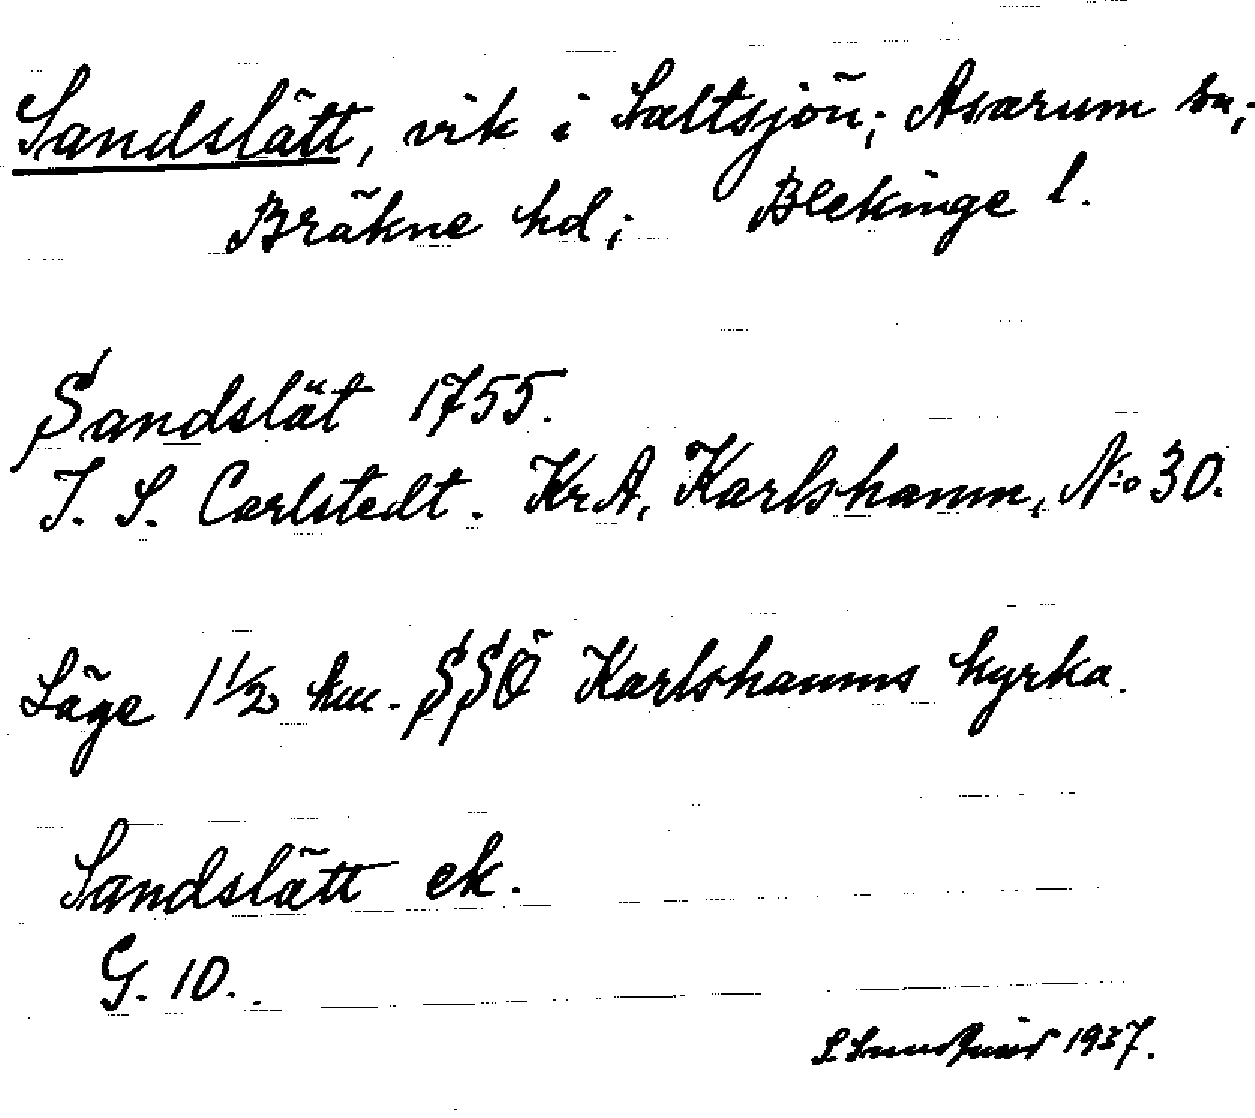 Sandslätt, vik i Saltsjön; Asarum sn;
Bräkne hd; Blekinge l.
Sandslät 1755.
J. S. Carlstedt. KrA, Karlshamn, N:o 30.
Läge 1 1/2 km. SSÖ Karlshamns kyrka.
Sandslätt ek.
G. 10.
1937.